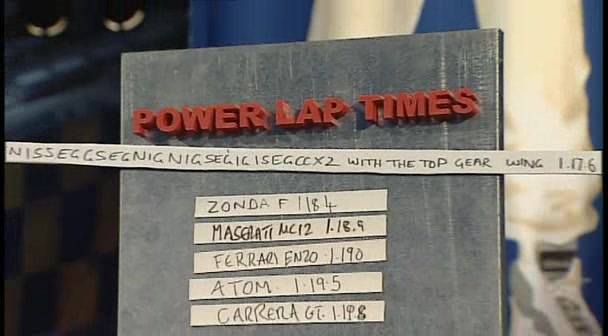 POWER LAP TIMES
NISSEGGSEGNIGNIGSEGIGISEGCCX2 WITH THE TOP GEAR WING 1.17.6
ZONDA F 1 18.4
MASERATI MC12 1.18.9
FERRARI ENZO 1.19.0
ATOM. 1.19.5
CARRERA GT. 1.19.8